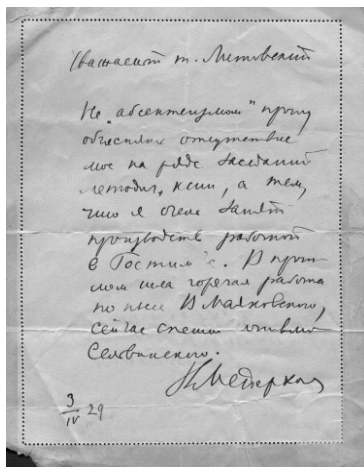 Уважаемый т. Литовский
Не „абсентеизмом" прошу
объяснять отсутствие
мое на ряде заседаний
а тем,
что я очень занят
производств работой
в Гостим'е. В
шла горячая работа
по пьесе В Маяковского,
сейчас спешно
Сельвинского.
Мейерхольд
3
IV 29